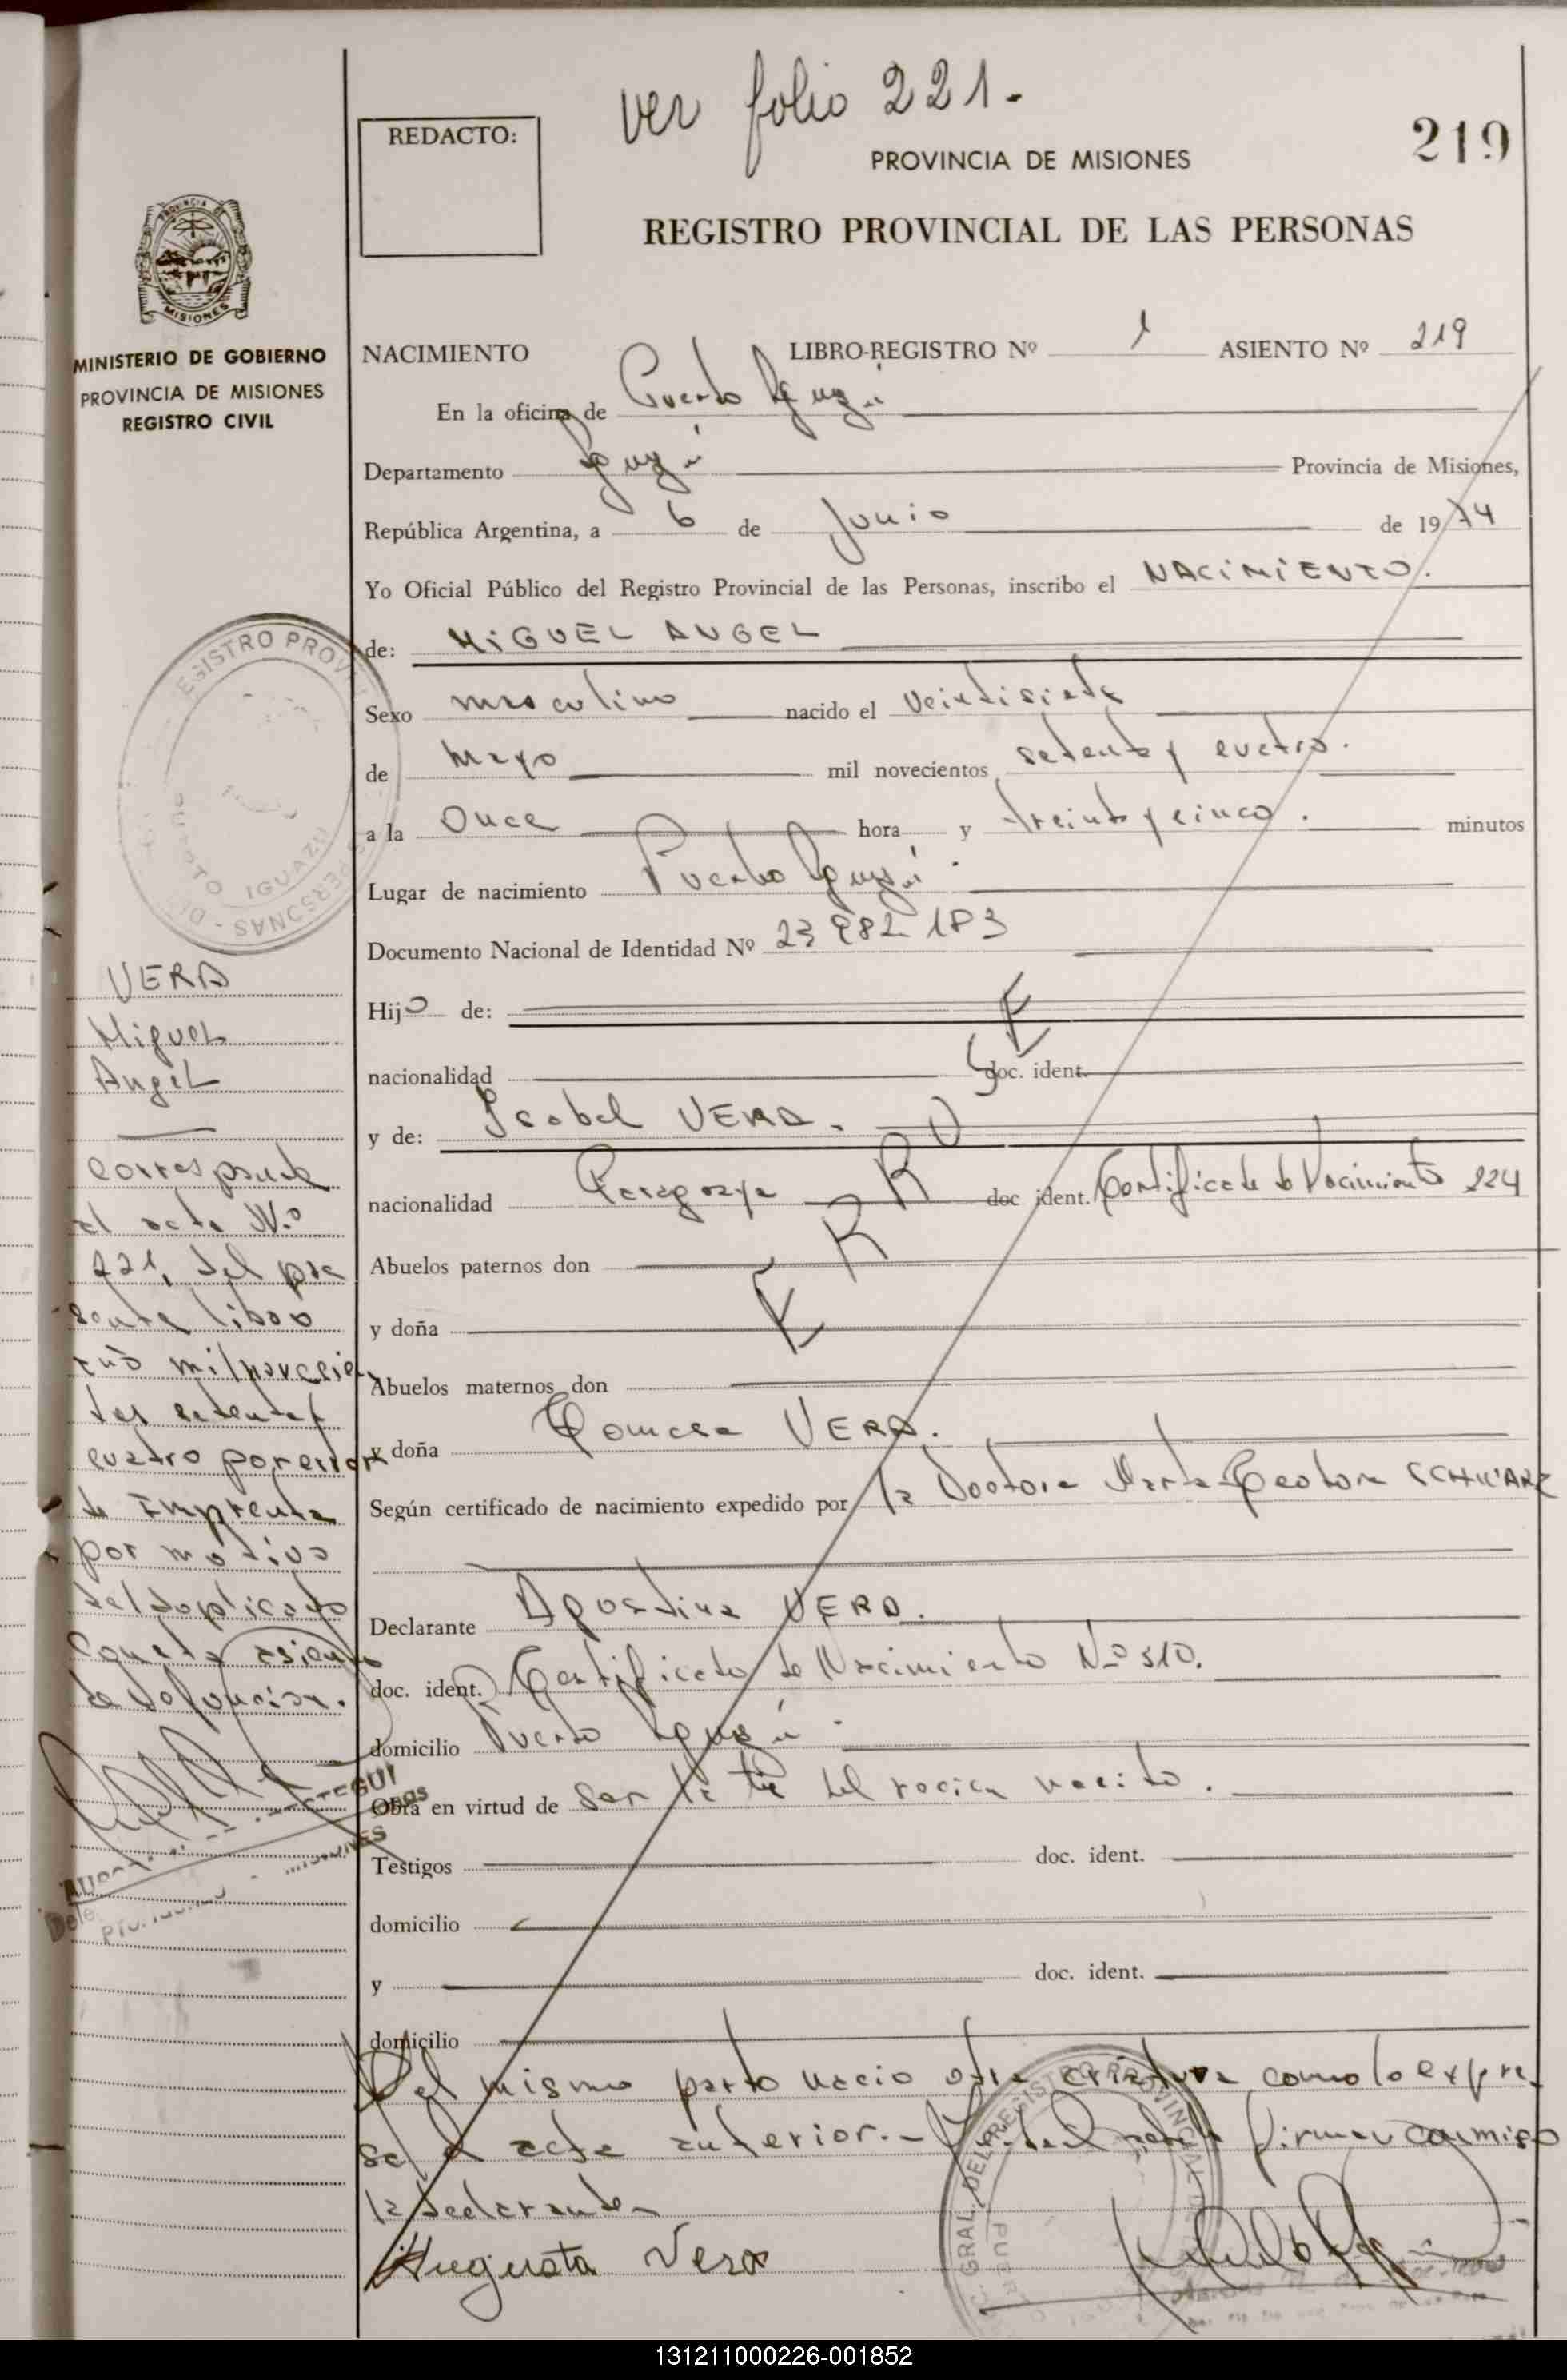 ver folio 221.
REDACTO:
219
PROVINCIA DE MISIONES
REGISTRO PROVINCIAL DE LAS PERSONAS
MISIONES
MINISTERIO DE GOBIERNO
PROVINCIA DE MISIONES
REGISTRO CIVIL
NACIMIENTO LIBRO-REGISTRO Nº 1 ASIENTO Nº 219
En la oficina de Puerto Iguazú
Departamento Iguazú Provincia de Misiones,
República Argentina, a 6 de Junio de 1974
Yo Oficial Público del Registro Provincial de las Personas, inscribo el NACIMIENTO.
de: MIGUEL ANGEL
Sexo masculino nacido el veintisiete
de mayo mil novecientos setenta y cuatro.
a la Once hora y treinta y cinco. minutos
Lugar de nacimiento Puerto Iguazú.
Documento Nacional de Identidad Nº 23 982 183
Hijo de:
nacionalidad doc. ident.
y de: Isabel VERA.
nacionalidad Paraguaya doc ident. Certificado de Nacimiento 224
Abuelos paternos don
y doña
Abuelos maternos don
y doña VERA.
Según certificado de nacimiento expedido por la Doctora Marta SCHWARZ
Declarante Agostina VERA.
doc. ident. Certificado de Nacimiento Nº 310.
domicilio Puerto Iguazú.
Obra en virtud de ser la tía del recien nacido.
Testigos doc. ident.
domicilio
y doc. ident.
domicilio
Del mismo parto nacio otra criatura como lo expre
sa el acta anterior.- firman conmigo
la declarante
Augusta Vera
VERA
Miguel
Angel
corresponde
al acta Nº
221, del pre
sente libro
año mil novecien
tos setenta y
cuatro por error
de imprenta
por motivo
del duplicado
asiento
de defunción.
ERROR
REGISTRO PROV
PERSONAS
PUERTO IGUAZU
GRAL. DEL REGISTRO PROVINCIAL D
131211000226-001852